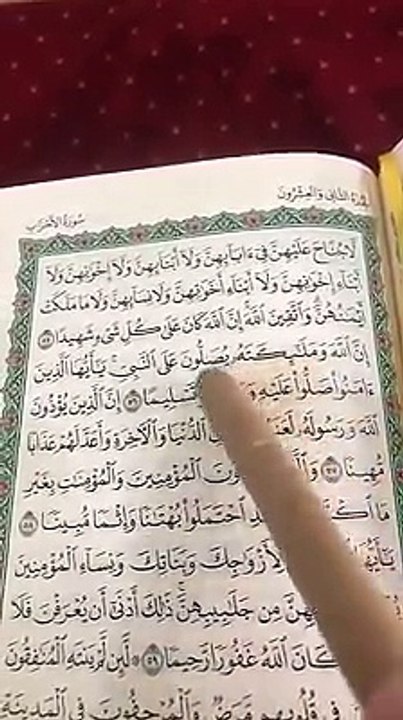 سُورَةُ الأَحْزَابِ
الجُزْءُ الثَّانِي وَالعِشْرُونَ
لَّا جُنَاحَ عَلَيْهِنَّ فِيٓ ءَابَآئِهِنَّ وَلَآ أَبْنَآئِهِنَّ وَلَآ إِخْوَٰنِهِنَّ وَلَآ
أَبْنَآءِ إِخْوَٰنِهِنَّ وَلَآ أَبْنَآءِ أَخَوَٰتِهِنَّ وَلَا نِسَآئِهِنَّ وَلَا مَا مَلَكَتْ
أَيْمَٰنُهُنَّۗ وَٱتَّقِينَ ٱللَّهَۚ إِنَّ ٱللَّهَ كَانَ عَلَىٰ كُلِّ شَىْءٍ شَهِيدًا ٥٥
إِنَّ ٱللَّهَ وَمَلَٰٓئِكَتَهُۥ يُصَلُّونَ عَلَى ٱلنَّبِىِّۚ يَٰٓأَيُّهَا ٱلَّذِينَ
ءَامَنُوا۟ صَلُّوا۟ عَلَيْهِ تَسْلِيمًا ٥٦ إِنَّ ٱلَّذِينَ يُؤْذُونَ
ٱللَّهَ وَرَسُولَهُۥ ٱلدُّنْيَا وَٱلْءَاخِرَةِ وَأَعَدَّ لَهُمْ عَذَابًا
مُّهِينًا ٥٧ ٱلْمُؤْمِنِينَ وَٱلْمُؤْمِنَٰتِ بِغَيْرِ
مَا ٱحْتَمَلُوا۟ بُهْتَٰنًا وَإِثْمًا مُّبِينًا ٥٨
يَٰٓأَيُّهَا لِّأَزْوَٰجِكَ وَبَنَاتِكَ وَنِسَآءِ ٱلْمُؤْمِنِينَ
مِن جَلَٰبِيبِهِنَّۚ ذَٰلِكَ أَدْنَىٰٓ أَن يُعْرَفْنَ فَلَا
كَانَ ٱللَّهُ غَفُورًا رَّحِيمًا ٥٩ لَّئِن لَّمْ يَنتَهِ ٱلْمُنَٰفِقُونَ
فِى قُلُوبِهِم مَّرَضٌ وَٱلْمُرْجِفُونَ فِى ٱلْمَدِينَةِ